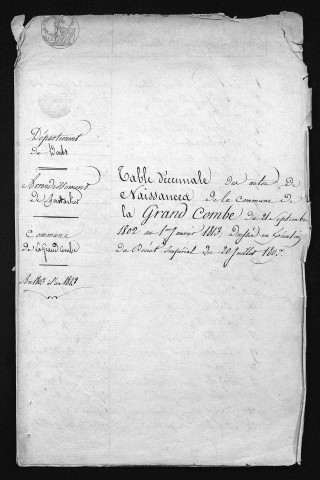 Département
du Doubs
Arrondissement
de Pontarlier
Commune
de la grand Combe
An 1803 à l'an 1813
Table décennale des actes de
Naissances de la Commune de
la Grand Combe du 21 Septembre
1802 au 1er Janvier 1813. Dressée en Exécution
du Décret Impérial du 20 Juillet 1807